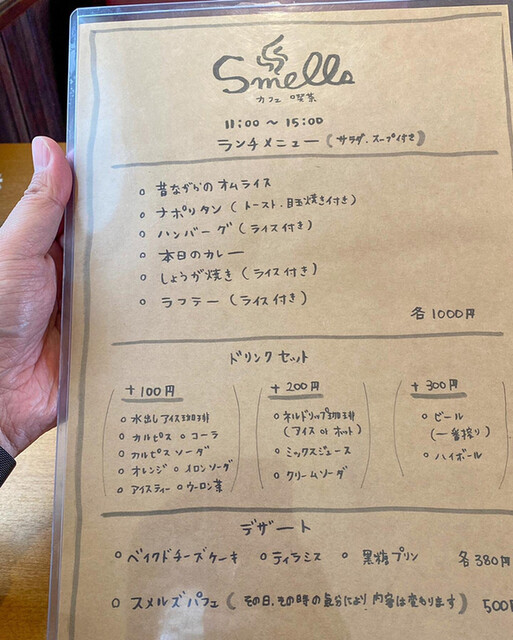 Smells
カフェ 喫茶
11:00 〜 15:00
ランチメニュー (サラダ・スープ付き)
○ 昔ながらの オムライス
○ ナポリタン (トースト・目玉焼き付き)
○ ハンバーグ (ライス付き)
○ 本日のカレー
○ しょうが焼き (ライス付き)
○ ラフテー (ライス付き)
各1000円
ドリンク セット
+100円
○ 水出しアイス珈琲
○ カルピス ○ コーラ
○ カルピスソーダ
○ オレンジ ○ メロンソーダ
○ アイスティー ○ ウーロン茶
+200円
○ ネルドリップ珈琲
(アイス or ホット)
○ ミックスジュース
○ クリームソーダ
+300円
○ ビール
(一番搾り)
○ ハイボール
デザート
○ ベイクドチーズケーキ ○ ティラミス ○ 黒糖プリン 各380円
○ スメルズパフェ (その日、その時の気分により内容は変わります) 500円